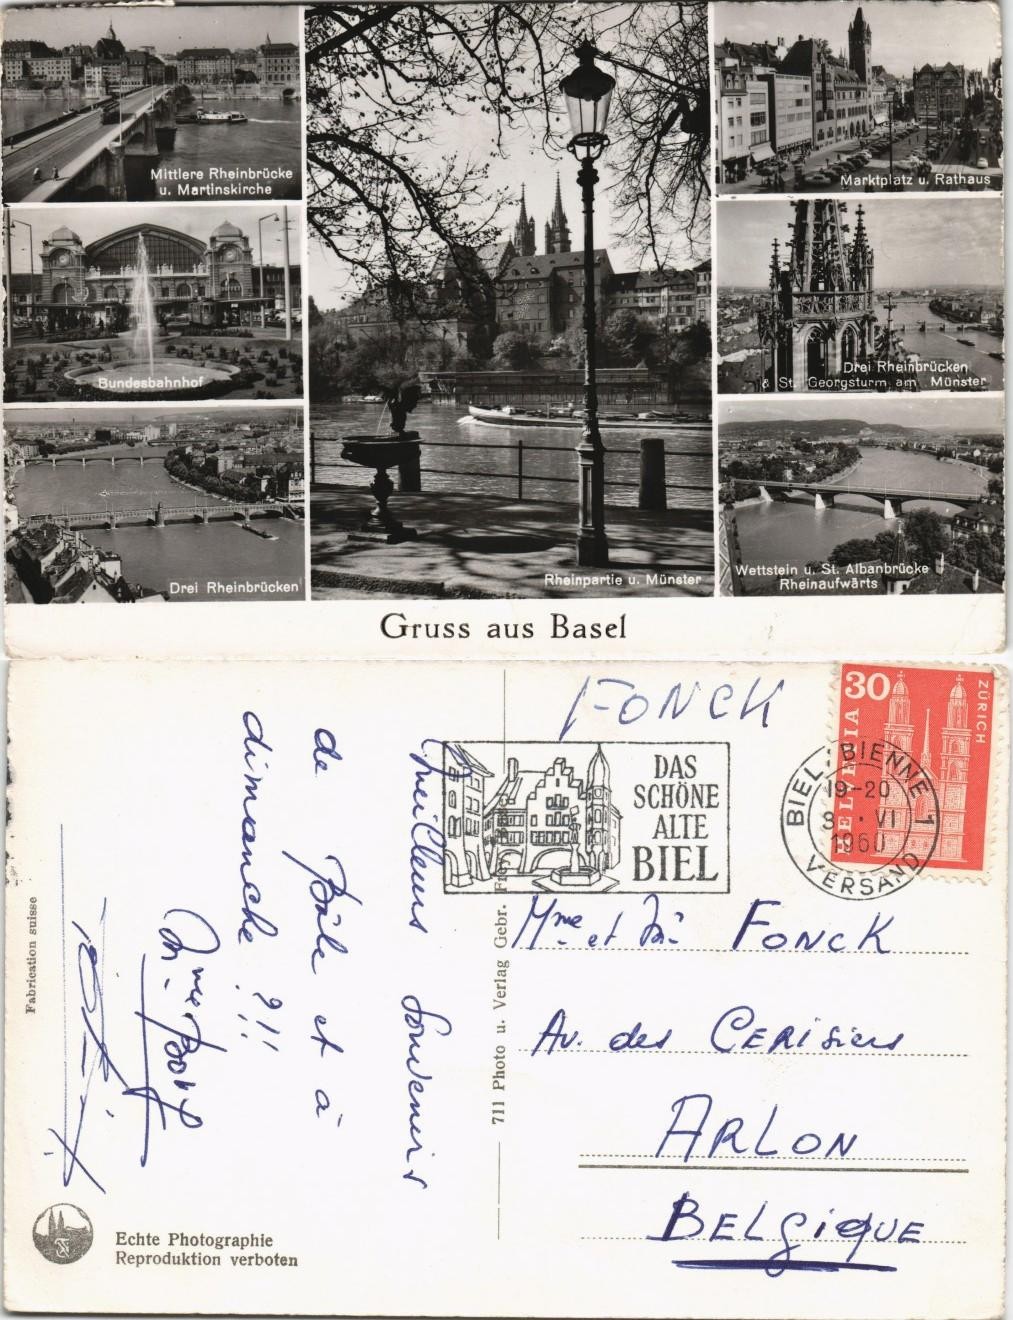 Mittlere Rheinbrücke
u. Martinskirche
Bundesbahnhof
Drei Rheinbrücken
Rheinpartie u. Münster
Marktplatz u. Rathaus
Drei Rheinbrücken
& St. Georgsturm am Münster
Wettstein u. St. Albanbrücke
Rheinaufwärts
Gruss aus Basel
FONCK
DAS
SCHÖNE
ALTE
BIEL
30
HELVETIA
ZÜRICH
BIEL-BIENNE 1
19-20
8. VI
1960
VERSAND
Meilleurs Souvenirs
de Bâle et à
dimanche ?!!
Mme et Mr FONCK
Av. des CERISiers
ARLON
BELGiQUE
711 Photo u. Verlag Gebr.
Fabrication suisse
Echte Photographie
Reproduktion verboten